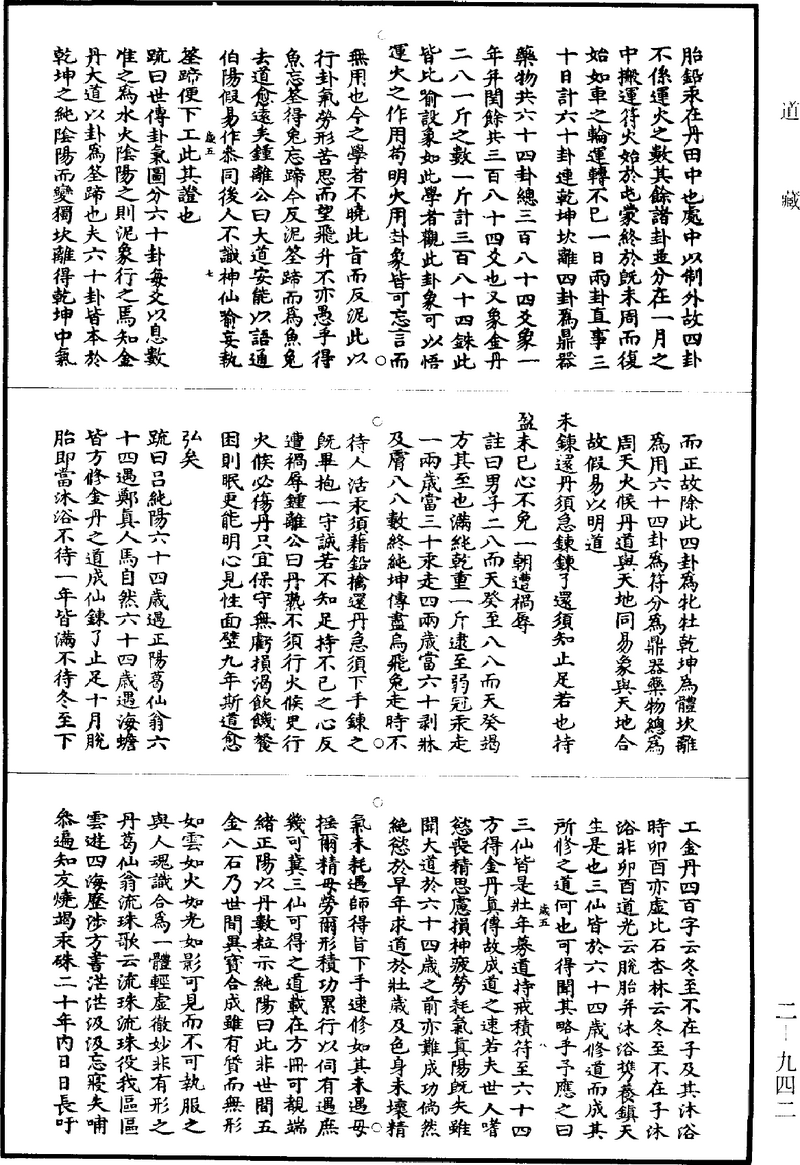 道藏
胎鉛汞在丹田中也處中以制外故四卦
不係運火之數其餘諸卦並分在一月之
中搬運符火始於屯蒙終於既未周而復
始如車之輪運轉不已一日兩卦直事三
十日計六十卦連乾坤坎離四卦為鼎器
藥物共六十四卦總三百八十四爻象一
年并閏餘共三百八十四爻也又象金丹
二八一斤之數一斤計三百八十四銖此
皆比喻設象如此學者觀此卦象可以悟
運火之作用苟明火用卦象皆可忘言而
無用也今之學者不曉此旨而反泥此以
行卦氣勞形苦思而望飛升不亦愚乎得
魚忘筌得兔忘蹄今反泥筌蹄而為魚兔
去道愈遠矣鍾離公曰大道安能以語通
伯陽假易作叅同後人不識神仙喻妄執
歲五
七
筌蹄便下工此其證也
疏曰世傳卦氣圖分六十卦每爻以息數
准之為水火陰陽之則泥象行之焉知金
丹大道以卦為筌蹄也夫六十卦皆本於
乾坤之純陰陽而變獨坎離得乾坤中氣
而正故除此四卦為牝牡乾坤為體坎離
為用六十四卦為符分為鼎器藥物總為
周天火候丹道與天地同易象與天地合
故假易以明道
未鍊還丹須急鍊鍊了還須知止足若也持
盈未已心不免一朝遭禍辱
註曰男子二八而天癸至八八而天癸竭
方其至也滿純乾重一斤逮至弱冠汞走
一兩歲當三十汞走四兩歲當六十剥牀
及膚八八數終純坤傳盡烏飛兔走時不
待人活汞須藉鉛擒還丹急須下手鍊之
既畢抱一守誠若不知足持不已之心反
遭禍辱鍾離公曰丹熟不須行火候更行
火候必傷丹只宜保守無虧損渴飲饑餐
困則眠更能明心見性面壁九年斯道愈
弘矣
疏曰吕純陽六十四歲遇正陽葛仙翁六
十四遇鄭真人馬自然六十四歲遇海蟾
皆方修金丹之道成仙鍊了止足十月脫
胎即當沐浴不待一年皆滿不待冬至下
工金丹四百字云冬至不在子及其沐浴
時卯酉亦虛比石杏林云冬至不在子沐
浴非卯酉道光云脫胎并沐浴擕養鎮天
生是也三仙皆於六十四歲修道而成其
所修之道何也可得聞其略乎予應之曰
歲五
八
三仙皆是壯年慕道持戒積符至六十四
方得金丹真傳故成道之速若夫世人嗜
慾喪精思慮損神疲勞耗氣真陽既失雖
聞大道於六十四歲之前亦難成功倘然
絕慾於早年求道於壯歲及色身未壞精
氣未耗遇師得旨下手速修如其未遇毋
搖爾精毋勞爾形積功累行以伺有遇庶
幾可冀三仙可得之道載在方冊可覩端
緒正陽以丹數粒示純陽曰此非世間五
金八石乃世間異寶合成雖有質而無形
如雲如火如光如影可見而不可執服之
與人魂識合為一體輕虛微妙非有形之
丹葛仙翁流珠歌云流珠流珠役我區區
雲遊四海歷涉方書茫茫汲汲忘寢失哺
叅遍知友燒竭汞硃二十年内日日長吁
二—九四二